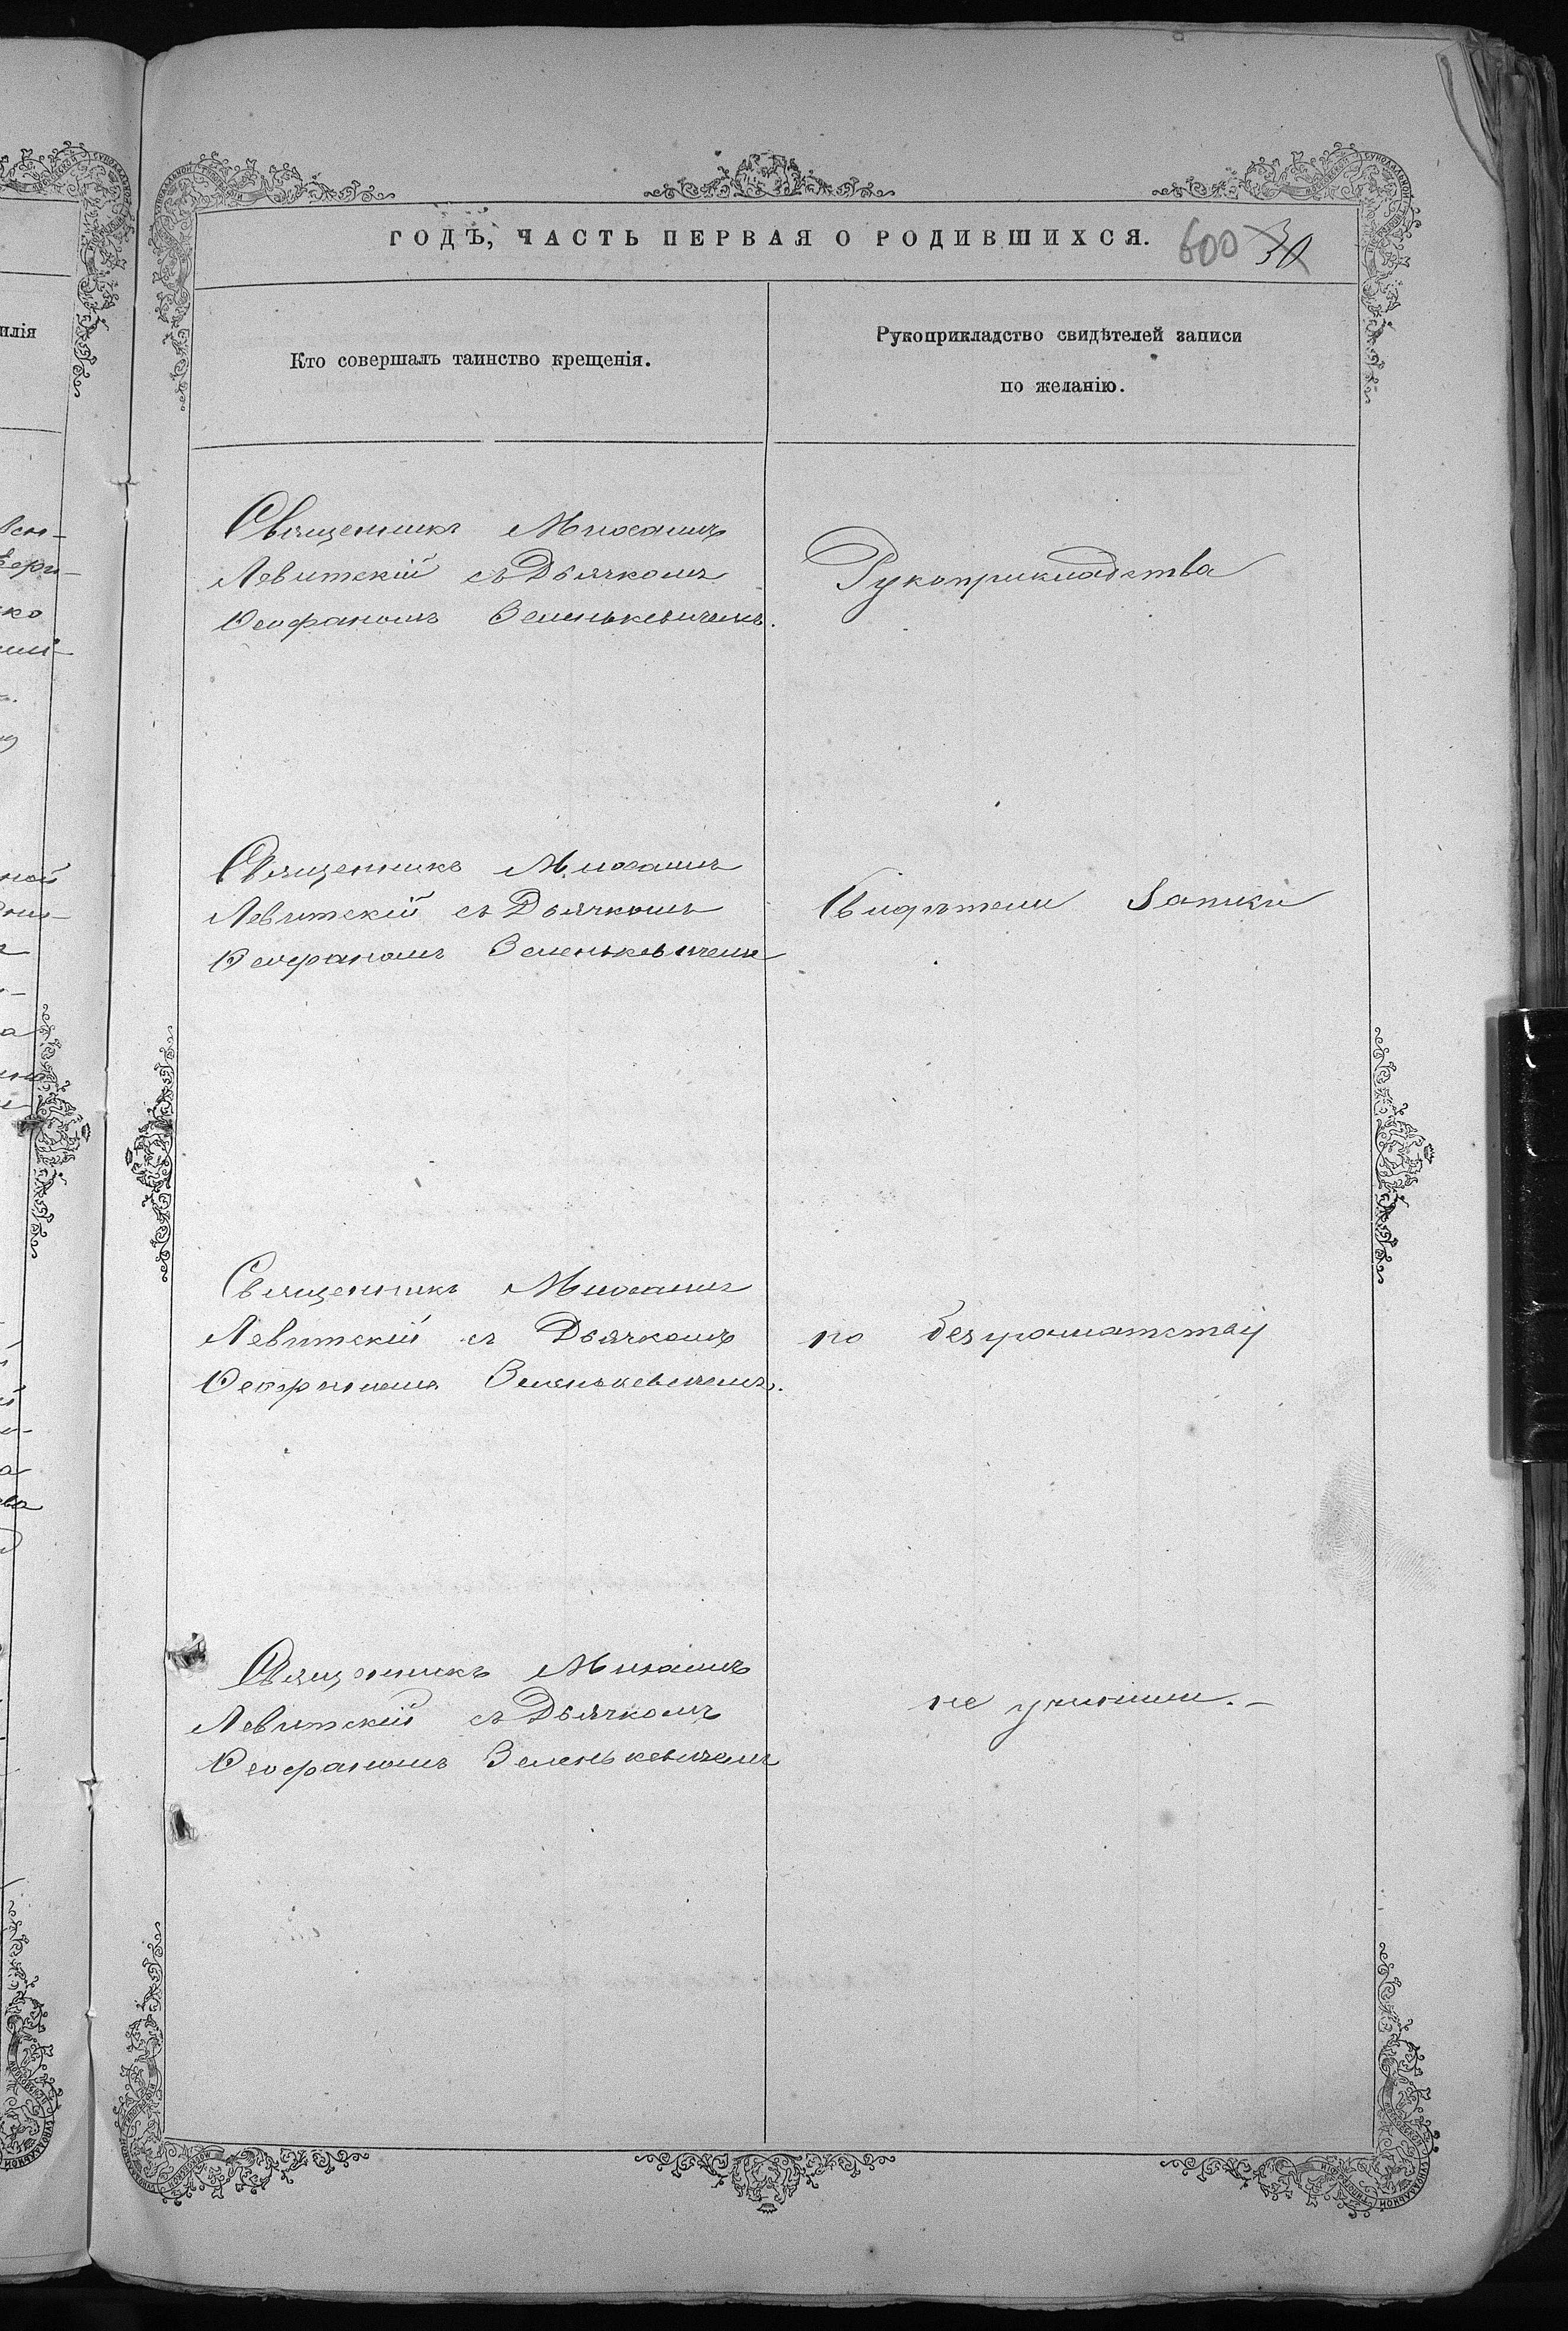 ГОДЪ, ЧАСТЬ ПЕРВАЯ О РОДИВШИХСЯ. 600 30
Кто совершалъ таинство крещенія.
Рукоприкладство свидѣтелей записи
по желанію.
Священникъ Михаилъ
Левитскій съ Дьячкомъ
Ѳеофаномъ Зеленькевичемъ.
Рукоприкладства
Священникъ Михаилъ
Левитскій съ Дьячкомъ
Ѳеофаномъ Зеленькевичемъ
Свидѣтели Записи
Священникъ Михаилъ
Левитскій съ Дьячкомъ
Ѳеофаномъ Зеленькевичемъ.
по безграматству
Священникъ Михаилъ
Левитскій съ Дьячкомъ
Ѳеофаномъ Зеленькевичемъ
не учинили.–